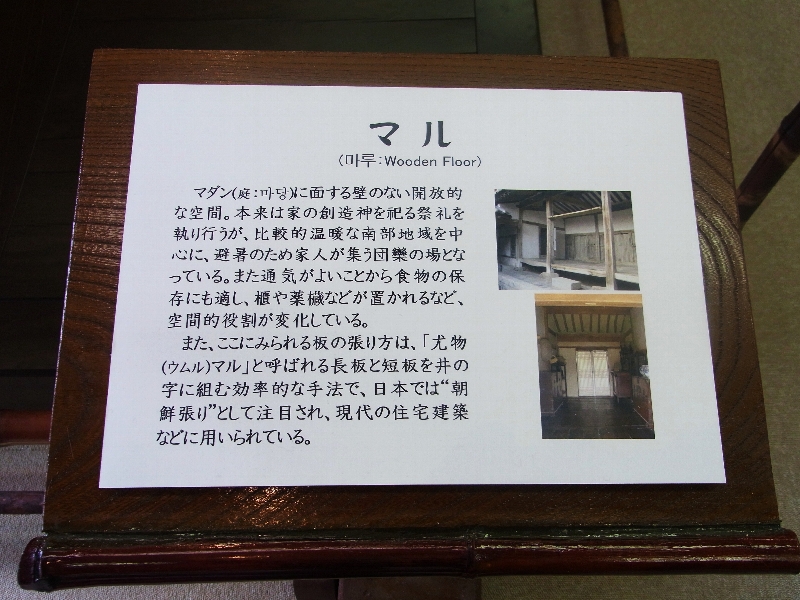 マル
(마루:Wooden Floor)
マダン(庭:마당)に面する壁のない開放的
な空間。本来は家の創造神を祀る祭礼を
執り行うが、比較的温暖な南部地域を中
心に、避暑のため家人が集う団欒の場とな
っている。また通気がよいことから食物の保
存にも適し、櫃や薬櫃などが置かれるなど、
空間的役割が変化している。
また、ここにみられる板の張り方は、「尤物
(ウムル)マル」と呼ばれる長板と短板を井の
字に組む効率的な手法で、日本では“朝
鮮張り”として注目され、現代の住宅建築
などに用いられている。